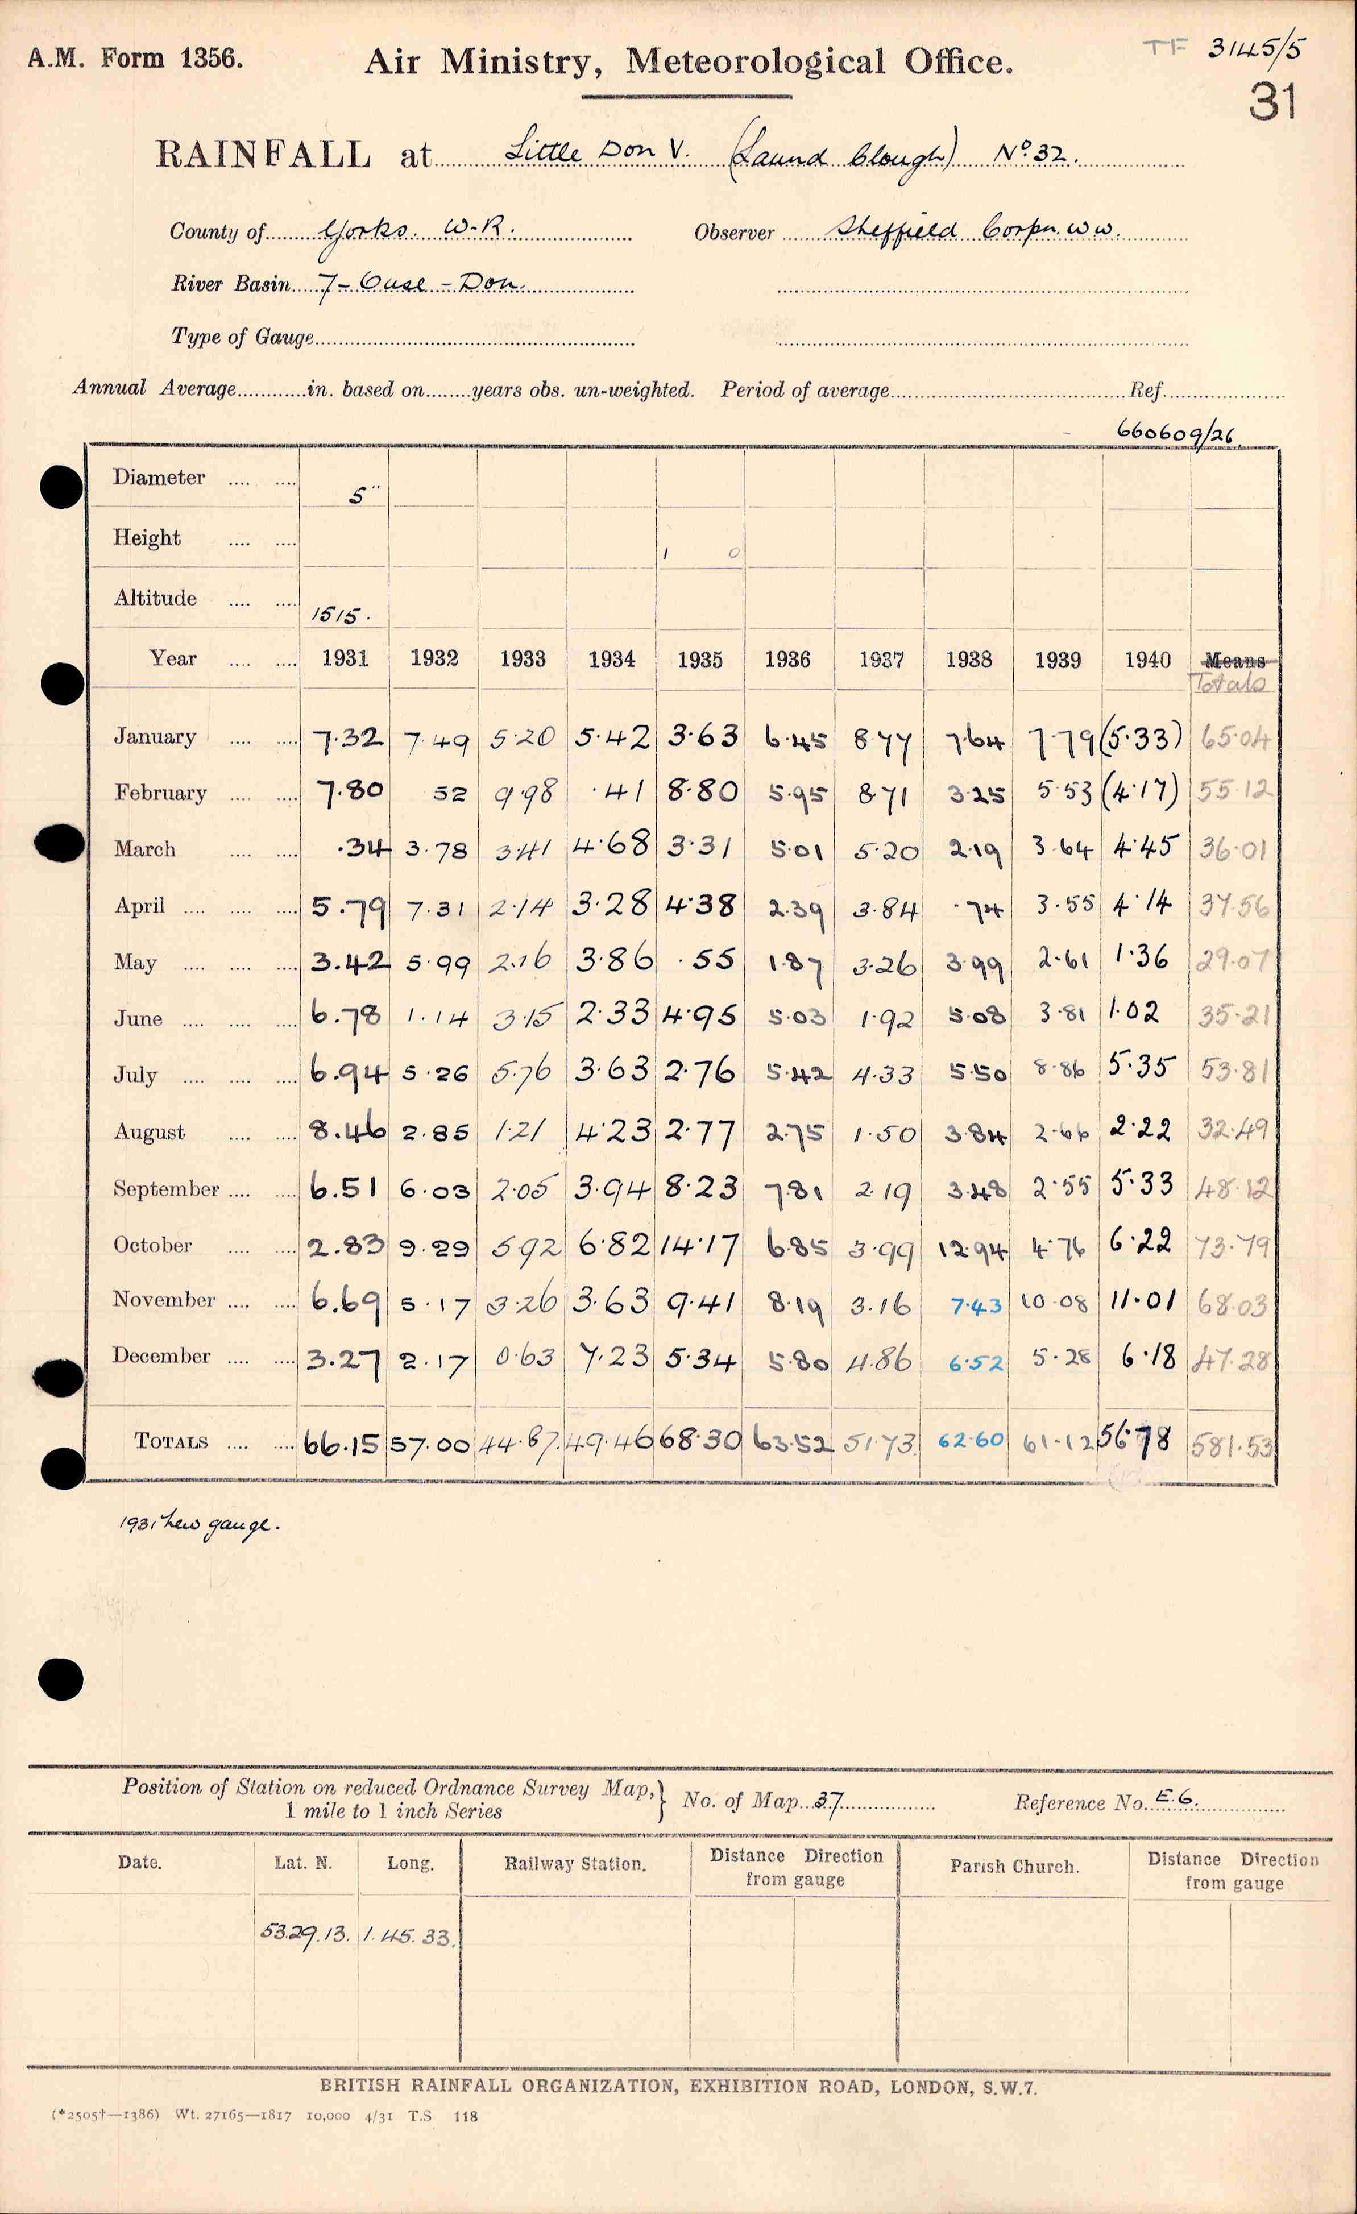 A.M. Form 1356.
Air Ministry, Meteorological Office.
TF 3145/5
31
RAINFALL at Little Don V. (Laund Clough) No. 32.
County of Yorks. W.R. Observer Sheffield Corpn. W.W.
River Basin 7 - Ouse - Don.
Type of Gauge
Annual Average in. based on years obs. un-weighted. Period of average Ref.
660609/26
Diameter 5"
Height 1 0
Altitude 1515.
Year 1931 1932 1933 1934 1935 1936 1937 1938 1939 1940 Means
Totals
January 7.32 7.49 5.20 5.42 3.63 6.45 8.77 7.64 7.79 (5.33) 65.04
February 7.80 52 9.98 .41 8.80 5.95 8.71 3.25 5.53 (4.17) 55.12
March .34 3.78 3.41 4.68 3.31 5.01 5.20 2.19 3.64 4.45 36.01
April 5.79 7.31 2.14 3.28 4.38 2.39 3.84 .74 3.55 4.14 37.56
May 3.42 5.99 2.16 3.86 .55 1.87 3.26 3.99 2.61 1.36 29.07
June 6.78 1.14 3.15 2.33 4.95 5.03 1.92 5.08 3.81 1.02 35.21
July 6.94 5.26 5.76 3.63 2.76 5.42 4.33 5.50 8.86 5.35 53.81
August 8.46 2.85 1.21 4.23 2.77 2.75 1.50 3.84 2.66 2.22 32.49
September 6.51 6.03 2.05 3.94 8.23 7.81 2.19 3.48 2.55 5.33 48.12
October 2.83 9.29 5.92 6.82 14.17 6.85 3.99 12.94 4.76 6.22 73.79
November 6.69 5.17 3.26 3.63 9.41 8.19 3.16 7.43 10.08 11.01 68.03
December 3.27 2.17 0.63 7.23 5.34 5.80 4.86 6.52 5.28 6.18 47.28
TOTALS 66.15 57.00 44.87 49.46 68.30 63.52 51.73 62.60 61.12 56.78 581.53
1931 new gauge.
Position of Station on reduced Ordnance Survey Map, } No. of Map 37 Reference No. E.6.
1 mile to 1 inch Series
Date. Lat. N. Long. Railway Station. Distance Direction from gauge Parish Church. Distance Direction from gauge
53.29.13. 1.45.33.
BRITISH RAINFALL ORGANIZATION, EXHIBITION ROAD, LONDON, S.W.7.
(*2505†—1386) Wt. 27165—1817 10,000 4/31 T.S 118